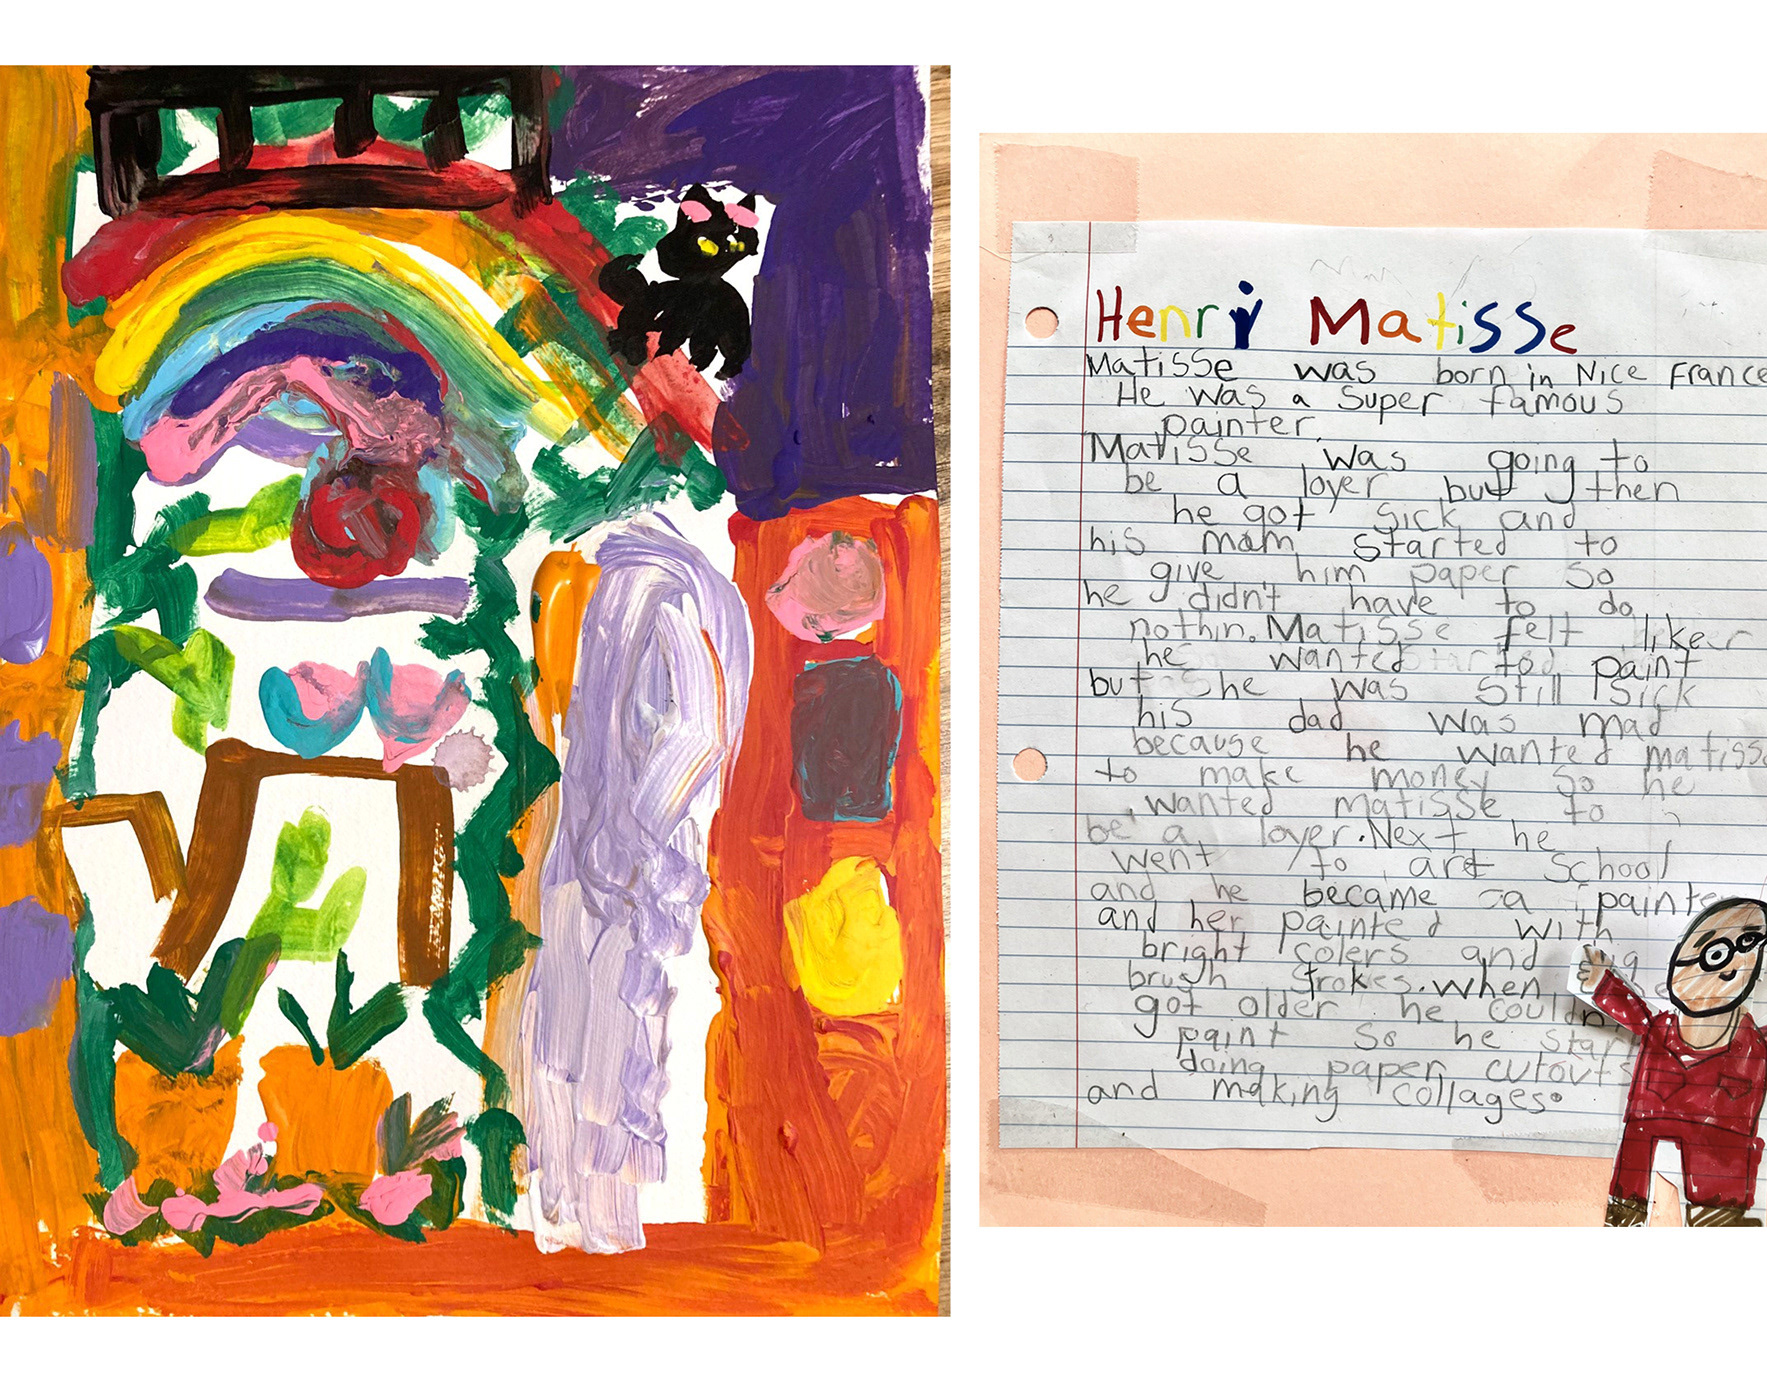 Henri Matisse
Matisse was born in Nice France
He was a super famous
painter.
Matisse was going to
be a loyer but then
he got sick and
his mam started to
give him paper so
he didn't have to do
nothin. Matisse felt like
he wanted to paint
but he was still sick
his dad was mad
because he wanted matisse
to make money so he
wanted matisse to
be a loyer. Next he
went to art school
and he became a painte
and her painted with
bright colers and
brush strokes. when
got older he couldn
paint so he start
doing paper cutouts
and making collages.